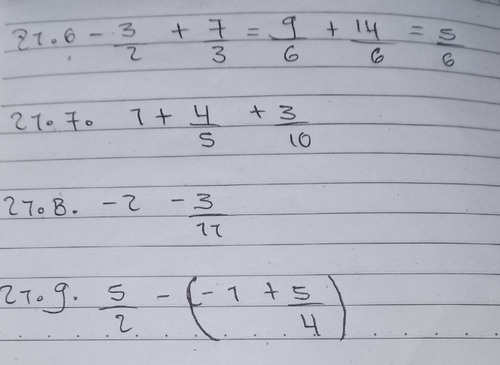 21.6 - 3/2 + 7/3 = 9/6 + 14/6 = 5/6
21.7. 1 + 4/5 + 3/10
21.8. -2 - 3/11
21.9. 5/2 - (-1 + 5/4)